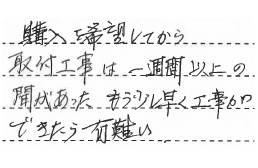 購入を希望してから
取付工事は一週間以上の
間があった もう少し早く工事が
できたら有難い